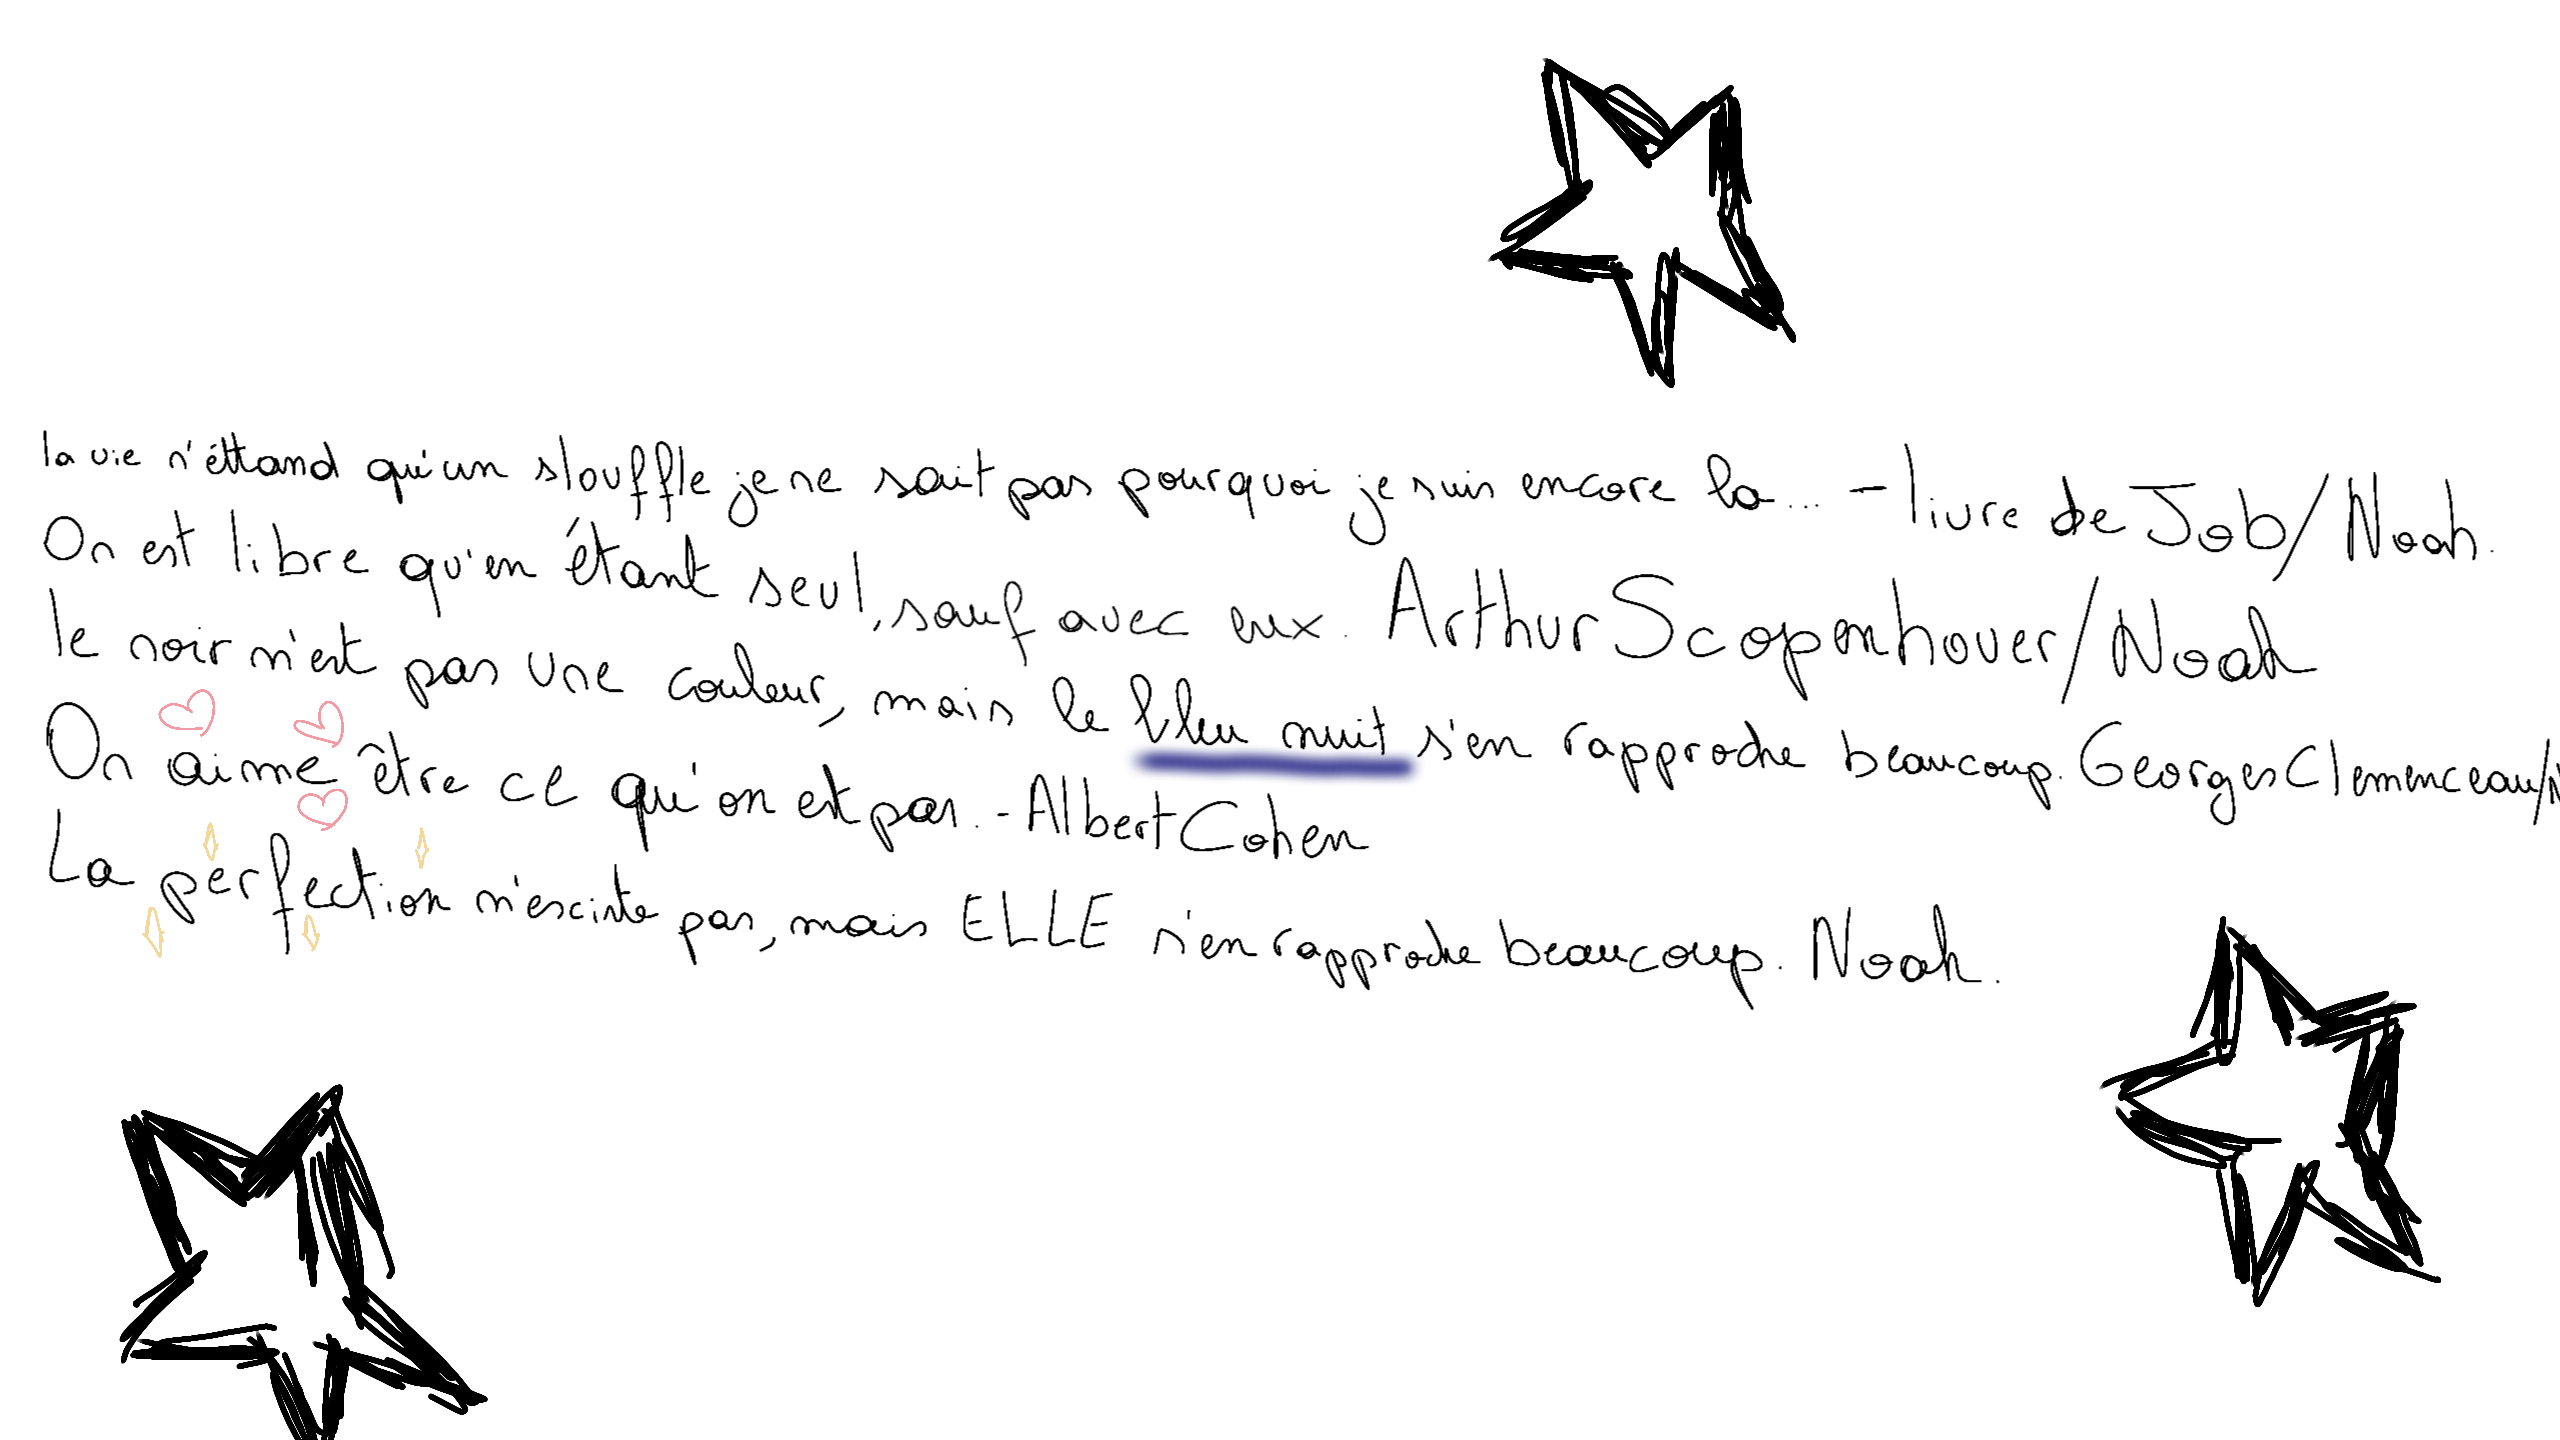 la vie n'éttand qu'un slouffle je ne sait pas pourquoi je suis encore la... - livre de Job/Noah.
On est libre qu'en étant seul, sauf avec eux. Arthur Scopenhouer/Noah
le noir n'est pas une couleur, mais le bleu nuit s'en rapproche beaucoup. Georges Clemenceau/N
On aime être ce qu'on est pas. - Albert Cohen
La perfection n'escinte pas, mais ELLE s'en rapproche beaucoup. Noah.